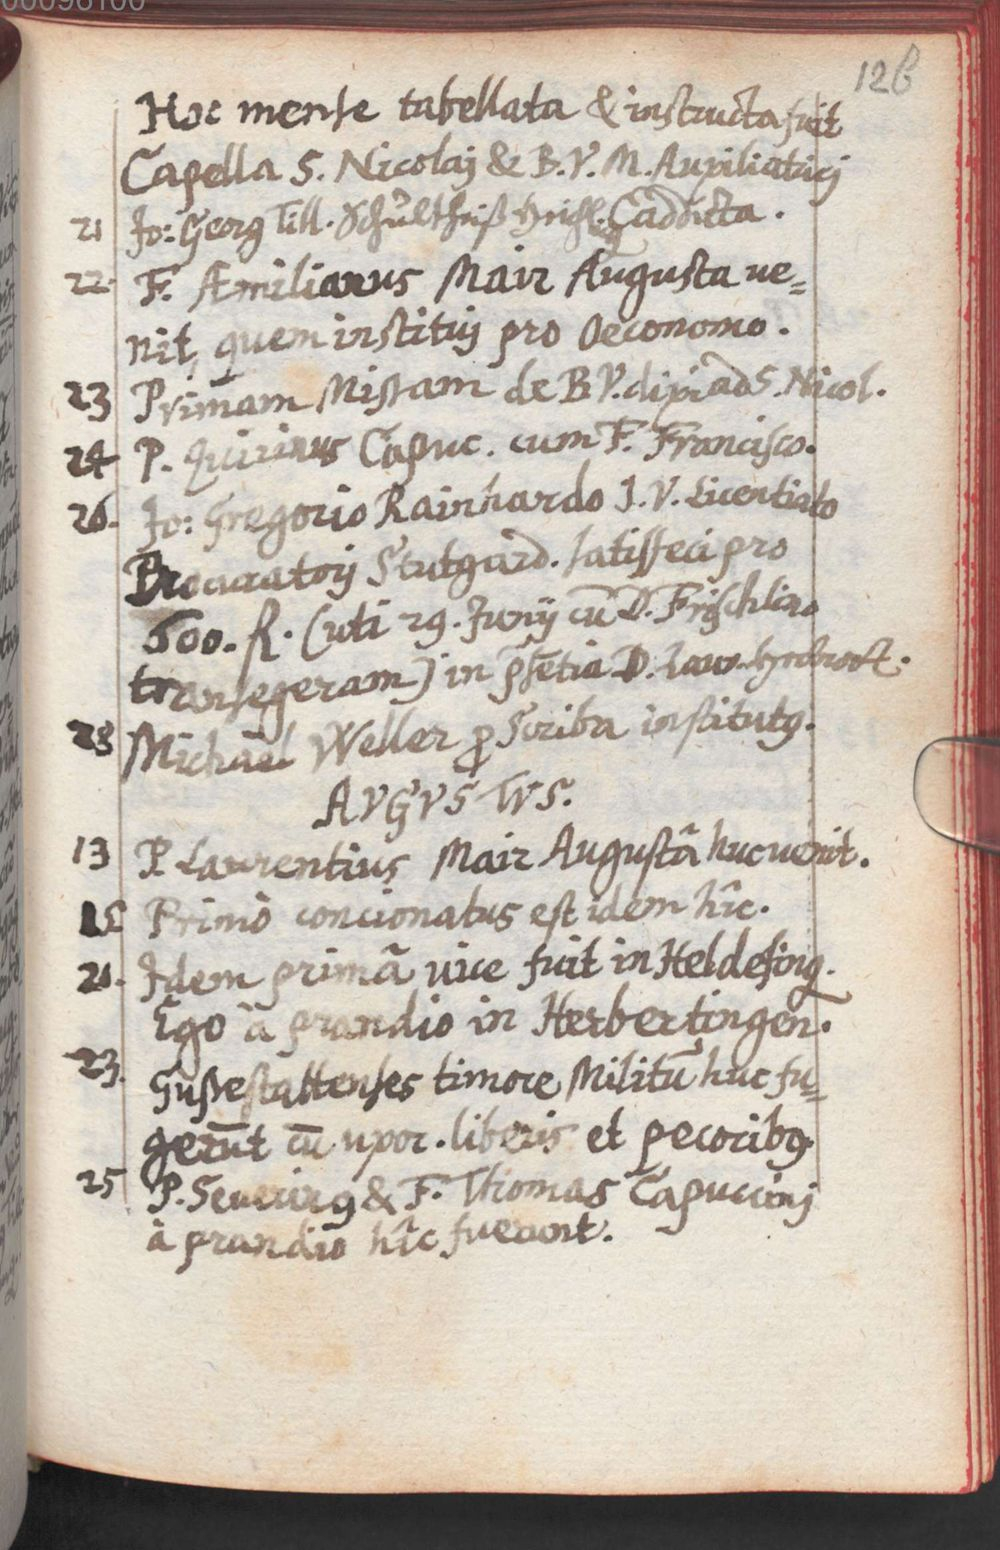 126
Hoc mense tabellata & instructa fuit
Capella S. Nicolaj & B. V. M. Auxiliatricj
21 Jo: Georg Till. Schultheiß
22. F. Æmilianus Mair Augusta ue=
nit, quem instituj pro Oeconomo.
23 Primam Missam de B V. dixi ad S. Nicol.
24 P. Quirinus Capuc. cum F. Francisco.
26. Jo: Gregorio Rainhardo I. V. Licentiato
Procuratorj Stutgard. satisfeci pro
500. R. (uti 29. Junij cũ D. Frischlino
transegeram) in p̃sẽtia D.
28 Michael Weller ꝓ Scriba institutꝰ.
AVGVSTVS.
13 P. Laurentius Mair Augustâ huc uenit.
15 Primò concionatus est idem hîc.
21. Idem primâ uice fuit in Heldesing.
Ego à prandio in Herbertingen.
23. Gussestattenses timore Militũ huc fu=
gerũt cũ uxor. liberis et pecoribꝰ
25 P. Seuerinꝰ & F. Thomas Capuccinj
à prandio hîc fuerunt.